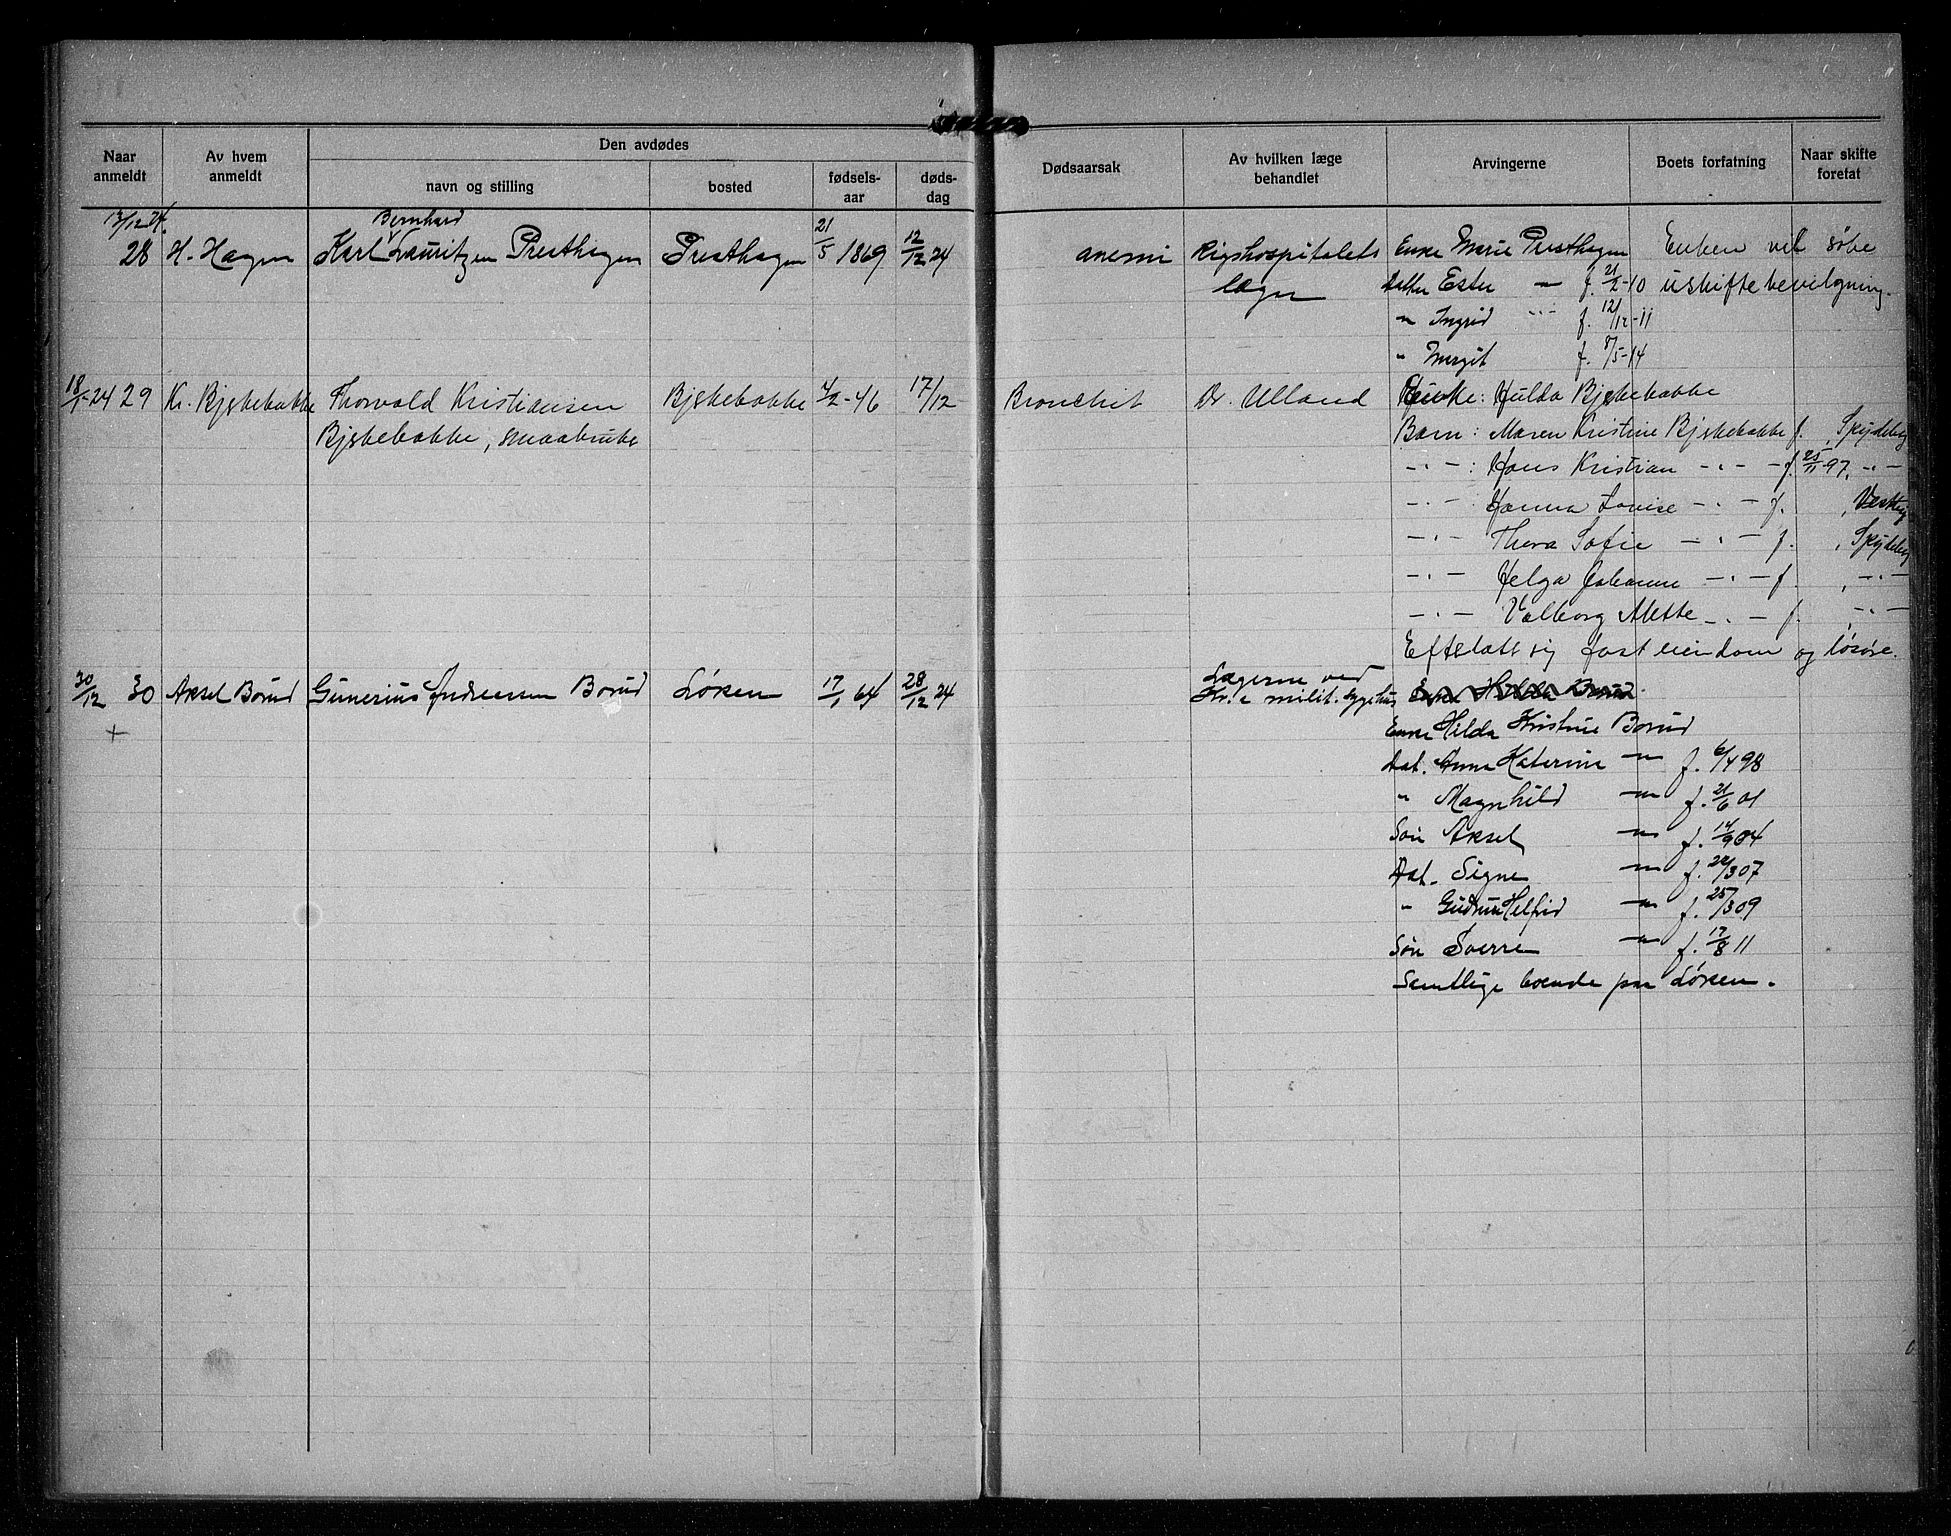 Naar anmeldt
Av hvem anmeldt
Den avdødes
navn og stilling
bosted
fødsels-aar
døds-dag
Dødsaarsak
Av hvilken læge behandlet
Arvingerne
Boets forfatning
Naar skifte foretat
13/12 24. Bernhard 21
28 H. Hagen Karl Lauritzen Presthagen Presthagen 21/5 1869 12/12 24 anemi Rigshospitalets Enke Marie Presthagen Enken vil søke
læger Datter Ester — f. 21/2-10 uskiftebevilgning.
" Ingrid " f. 12/12-11
" Margit f. 8/5-14
18/1-24 29 Kr. Bjekebakke Thorvald Kristiansen Bjekebakke 4/2-46 17/12 Bronchit Dr. Ulland Enke: Hulda Bjekebakke
Bjekebakke, smaabruker Barn: Maren Kristine Bjekebakke f. , Spydeberg
— " —: Hans Kristian — " — f. 25/11 97, — " —
— " — Hanna Lovise — " — f. , Vestby
— " — Thora Sofie — " — f. , Spydeberg
— " — Helga Johanne — " — f. , — " —
— " — Valborg Alette — " — f. , — " —
Efterlatt sig fast eiendom og løsøre.
30/12 30 Aksel Borud Gunerius Andreassen Borud Løken 17/1 64 28/12 24 Lægerne ved
Kr.a milit. sygehus Enke Hilda Borud
+ Enke Hilda Kristine Borud
Dat. Anna Katerine — " — f. 6/4 98
" Magnhild — " — f. 21/6 01
Søn Aksel — " — f. 14/9 04
Dat. Signe — " — f. 22/3 07
" Gudrun Helfrid — " — f. 25/3 09
Søn Sverre — " — f. 17/8 11
Samtlige boende paa Løken.